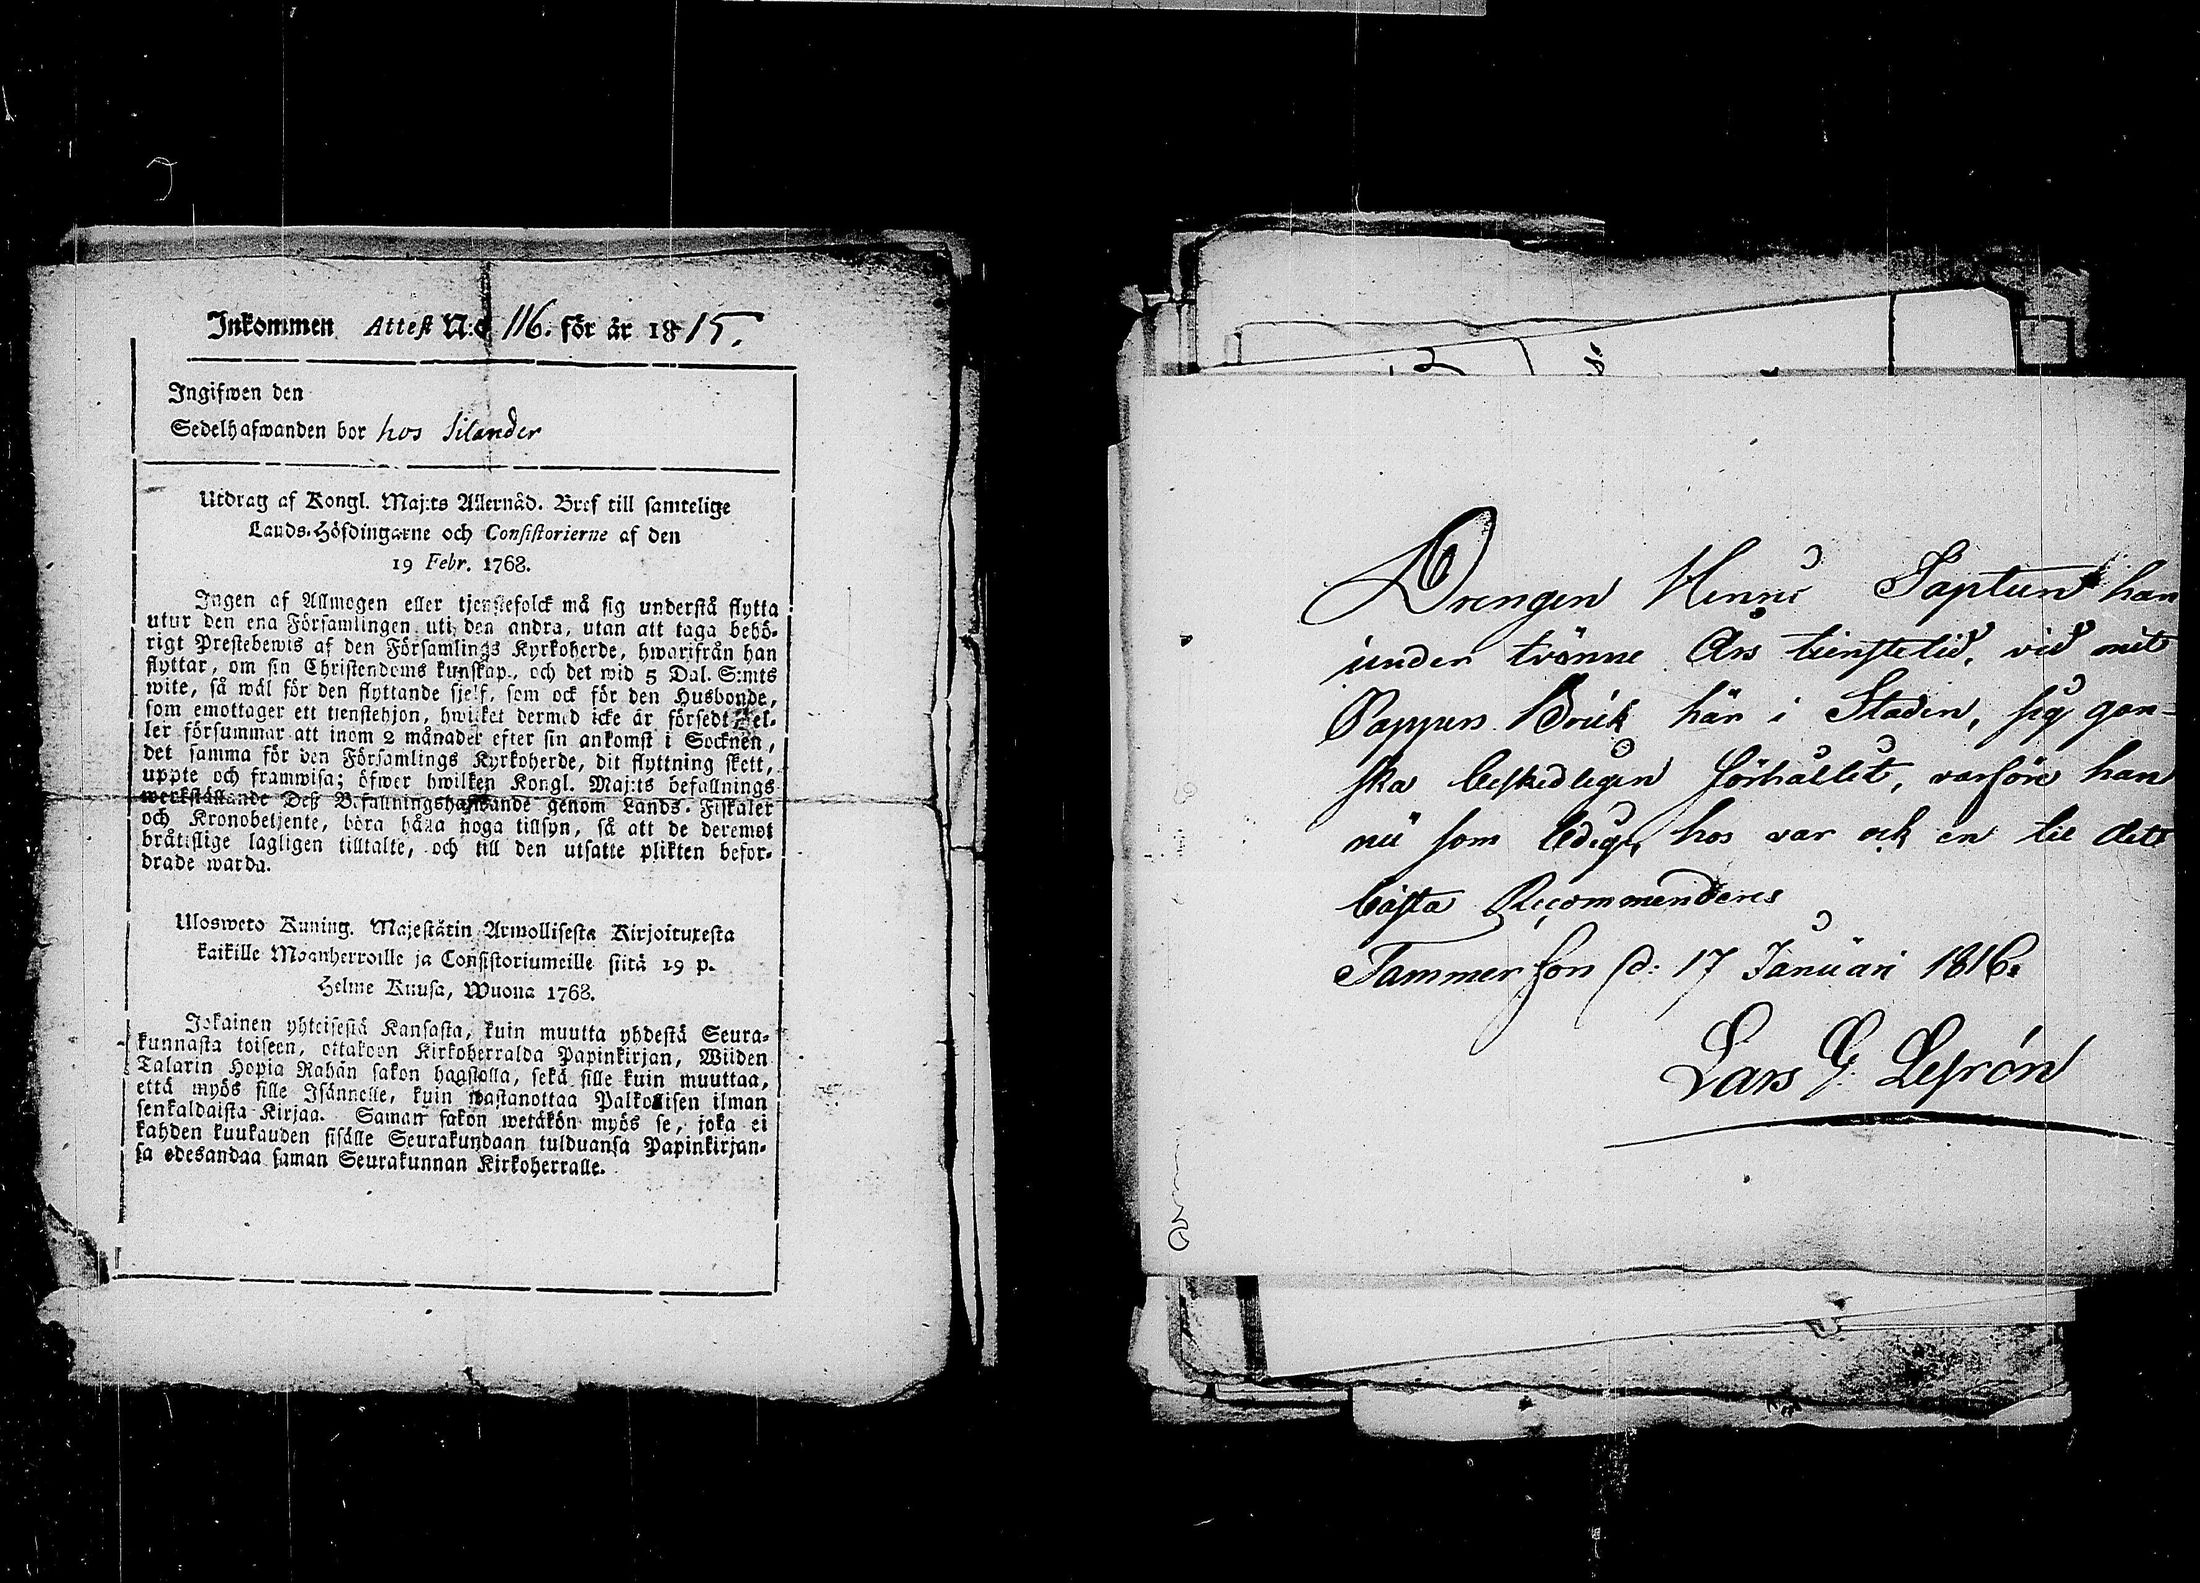 Inkommen Attest N:o 116. för år 1815.
Ingifwen den
Sedelhafwanden bor hos Silander
Utdrag af Kongl. Maj:ts Allernåd. Bref till samtelige
Lands-Höfdingarne och Consistorierne af den
19 Febr. 1768.
Ingen af Allmogen eller tjenstefolck må sig understå flytta
utur den ena Församlingen uti den andra, utan att taga behö-
rigt Prestebewis af den Församlings Kyrkoherde, hwarifrån han
flyttar, om sin Christendoms kunskap, och det wid 5 Dal. S:mts
wite, så wäl för den flyttande sjelf, som ock för den Husbonde,
som emottager ett tjenstehjon, hwilket dermed icke är försedt el-
ler försummar att inom 2 månader efter sin ankomst i Socknen,
det samma för den Församlings Kyrkoherde, dit flyttning skett,
uppte och framwisa; öfwer hwilken Kongl. Maj:ts befallnings
werkställande Deß Befallningshafwande genom Lands-Fiskaler
och Kronobetjente, böra hålla noga tillsyn, så att de deremot
bråtslige lagligen tilltalte, och till den utsatte plikten befor-
drade warda.
Ulosweto Kuning. Majestätin Armollisesta Kirjoituxesta
kaikille Maanherroille ja Consistoriumeille siitä 19 p.
Helme Kuusa, Wuona 1768.
Jokainen yhteisestä Kansasta, kuin muutta yhdestä Seura-
kunnasta toiseen, ottakoon Kirkoherralda Papinkirjan, Wiiden
Talarin Hopia Rahan sakon haastolla, sekä sille kuin muuttaa,
että myös sille Isännelle, kuin wastanottaa Palkollisen ilman
senkaldaista Kirjaa. Saman sakon wetäkön myös se, joka ei
kahden kuukauden sisälle Seurakundaan tulduansa Papinkirjan-
sa edesandaa saman Seurakunnan Kirkoherralle.
Drengen Henric han
under tvänne Års tienstetid, vid mit
Pappers Brúk här i Staden, sig gan-
ska beskedligen förhållit, varföre han
nú som ledig, hos var ock en til det
bästa Recommenderes
Tammerfors d: 17 Januari 1816.
Lars G. Lefrén